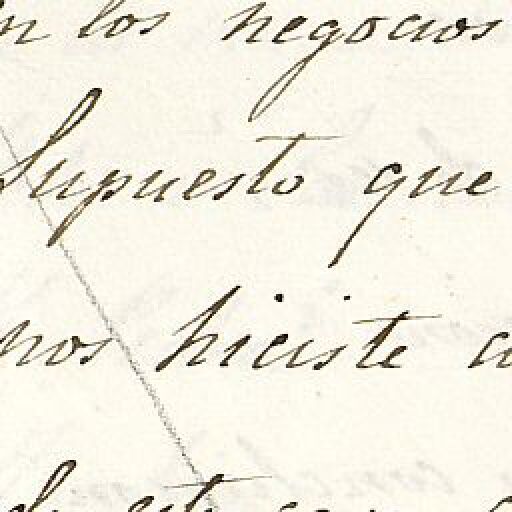 en los negocios
Supuesto que
nos hiciste